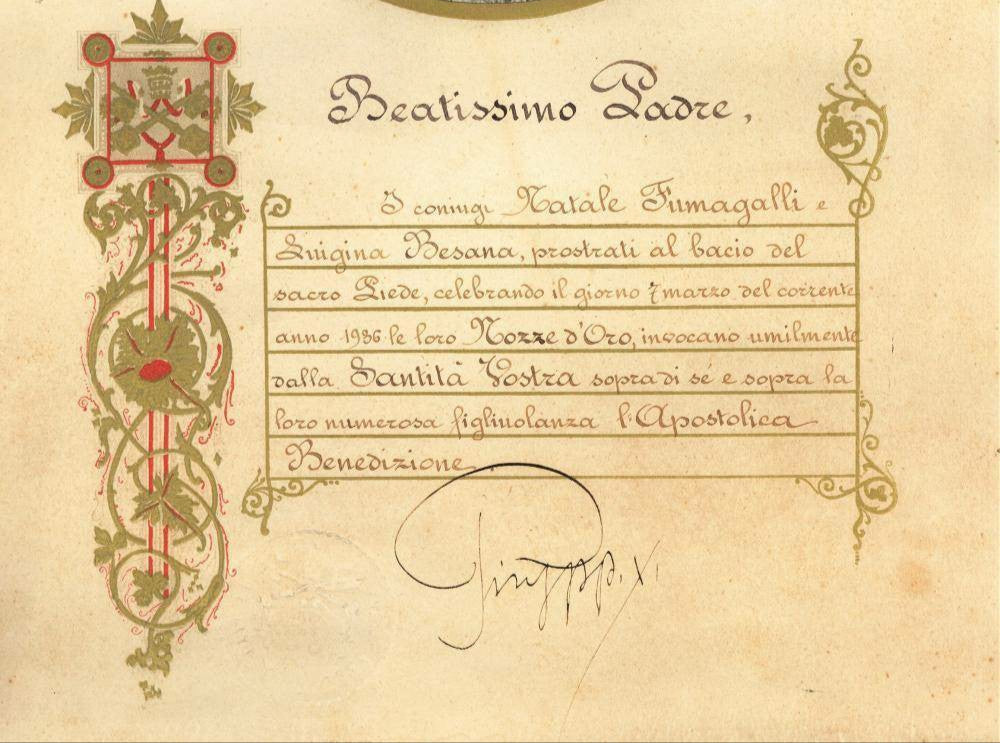 Beatissimo Padre,
I coniugi Natale Fumagalli e
Luigina Besana, prostrati al bacio del
sacro Piede, celebrando il giorno 7 marzo del corrente
anno 1936 le loro Nozze d'Oro, invocano umilmente
dalla Santità Vostra sopra di sé e sopra la
loro numerosa figliuolanza l'Apostolica
Benedizione.
Pius PP. XI.